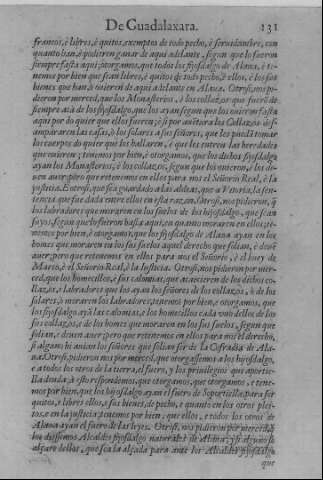 De Guadalaxara. 131
francos, è libres, è quitos, exemptos de todo pecho, è seruidumbre, con
quanto han, è pudieren ganar de aqui adelante, segun que lo fueron
siempre fasta aqui; otorgamos, que todos los fijosdalgo de Alaua, è te-
nemos por bien que sean libres, è quitos de todo pecho, è ellos, è los sus
bienes que han, ò ouieren de aqui adelante en Alaua. Otrosi, nos pi-
dieron por merced, que los Monasterios, è los collazos que fueron de
siempre acà de los fijosdalgo, que los ayan segun que los ouieron fasta
aqui por do quier que ellos fueren; è si por auentura los Collazos de-
sampararen las casas, ò los solares a sus señores, que les puedã tomar
los cuerpos do quier que los hallaren, è que les entren las heredades
que ouieren; tenemos por bien, è otorgamos, que los dichos fijosdalgo
ayan los Monasterios, è los collazos, segun que los ouieron, è los de-
uen auer; pero que retenemos en ellos para nos el Señorio Real, è la
justicia. E otrosi, que sea guardado a las aldeas, que a Vitoria, la sen-
tencia que fue dada entre ellos en esta razon. Otrosi, nos pidieron, q̃
los labradores que moraren en los suelos de los hijosdalgo, que sean
suyos, segun que lo fueron hasta aqui, en quanto moraren en ellos; te-
nemos por bien, è otorgamos, que los fijosdalgo de Alaua ayan en los
homes que moraren en los sus suelos aquel derecho que solian, è deuẽ
auer; pero que retenemos en ellos para nos el Señorio, è el buey de
Março, è el Señorio Real, è la Iusticia. Otrosi, nos pidieron por mer-
ced, que los homecillos, è las calonias, que acaecieren de los dichos co-
llazos, è labradores que los ayan los señores de los collazos, ò de los
solares, ò moraren los labradores; tenemos por bien, è otorgamos, que
los fijosdalgo ayã las calonias, è los homecillos cada vno dellos de los
sus collazos, è de los homes que moraren en los sus suelos, segun que
solian, è deuen auer; pero que retenemos en ellos para nos el derecho,
si alguno hi auian los señores que solian ser de la Cofradia de Ala-
ua. Otrosi, pidieron nos por merced, que otorgassemos a los hijosdalgo,
e a todos los otros de la tierra, el fuero, y los priuilegios que aportie-
lla denda. à esto respondemos, que otorgamos, que otorgamos, e tene-
mos por bien, que los hijosdalgo ayan el fuero de Soportiella, para ser
quitos, e libres ellos, e sus bienes, de pecho, e quanto en los otros plei-
tos, e en la justicia; tenemos por bien, que ellos, e todos los otros de
Alaua ayan el fuero de las leyes. Otrosi, nos pidieron por merced, q̃
les diessemos Alcaldes fijosdalgo naturales de Alaua; y si alguno se
alçare dellos, que sea la alçada para ante los Alcaldes fijosdalgo
que